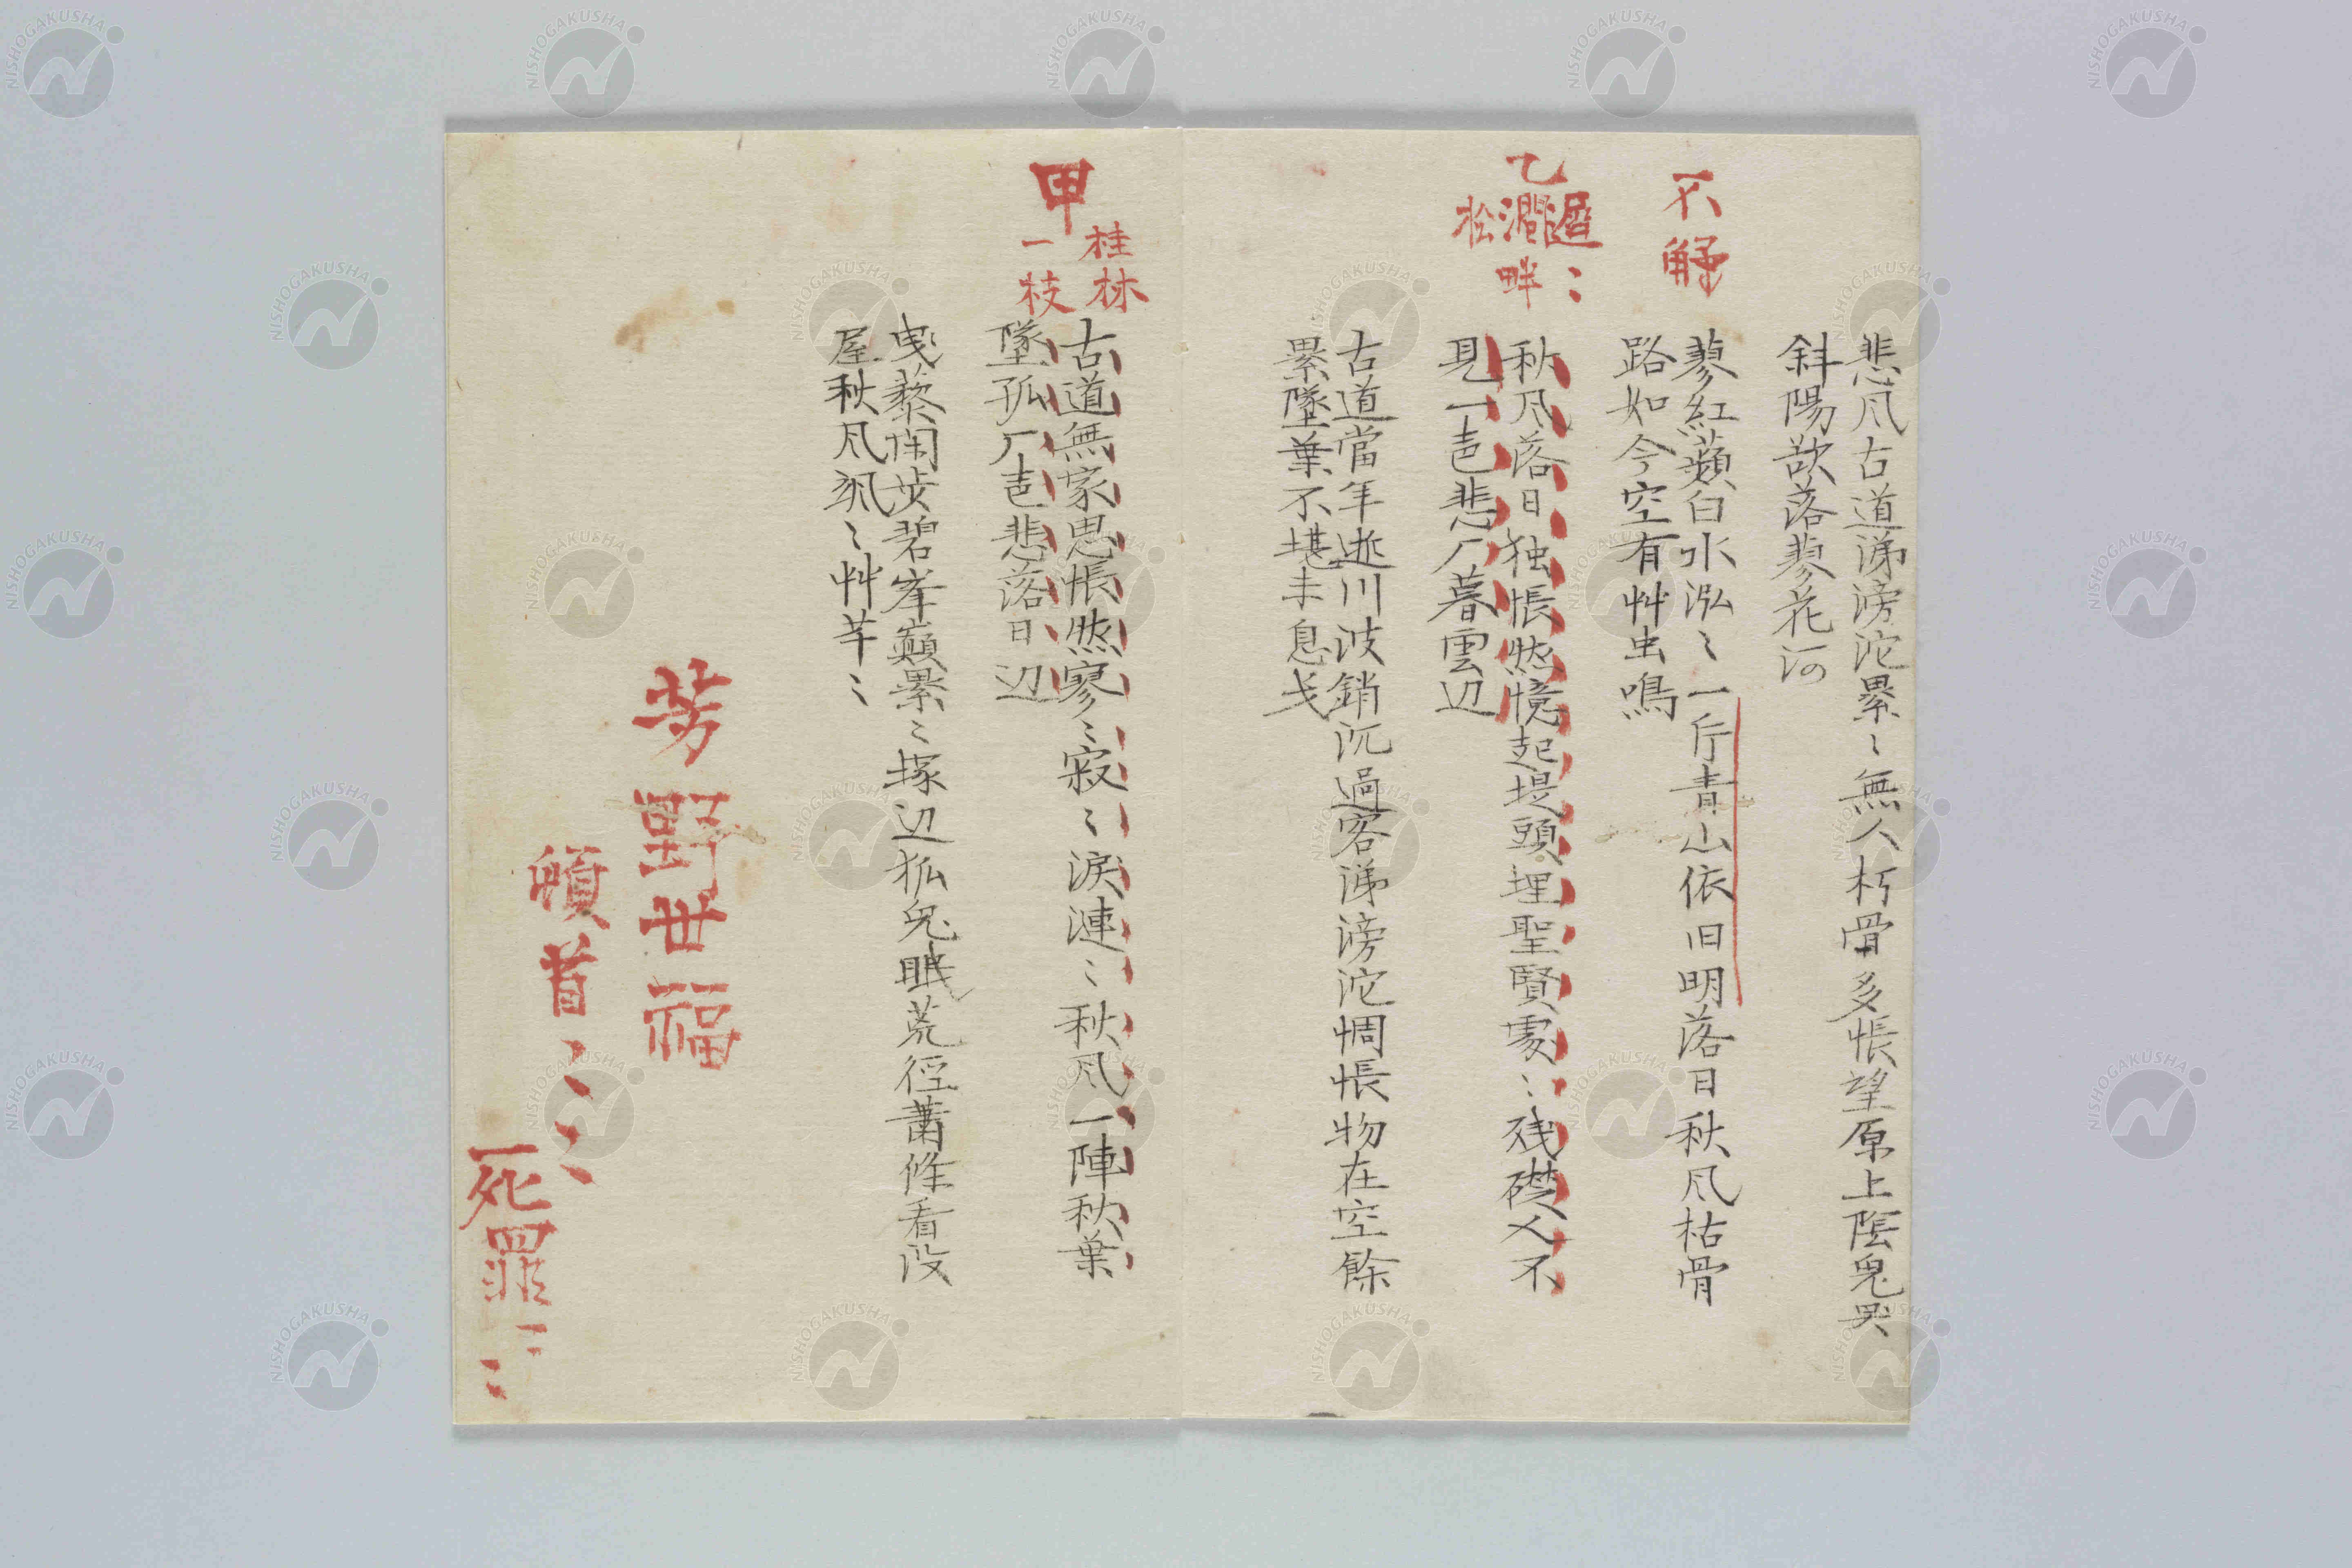 悲风古道涕滂沱累〻無人朽骨多悵望原上陰鬼哭
斜陽欲落蓼花河
不解
蓼紅蘋白水泓〻一片青山依旧明落日秋风枯骨
路如今空有艸虫鳴
乙
遲〻
澗畔
松
秋风落日独悵然憶起堤頭埋聖賢處〻残礎人不
見一声悲厂暮雲辺
古道當年逝川波銷沉過客涕滂沱惆悵物在空餘
累墜葉不堪未息戈
甲
桂林
一枝
古道無家思悵然寥〻寂〻涙漣〻秋风一陣秋葉
墜孤厂声悲落日辺
曳藜閑歩碧峯巓累〻塚辺狐兔眠荒徑蕭條看没
屋秋风飒〻艸芊〻
芳野世福
頓首〻〻
死罪〻〻
NISHOGAKUSHA